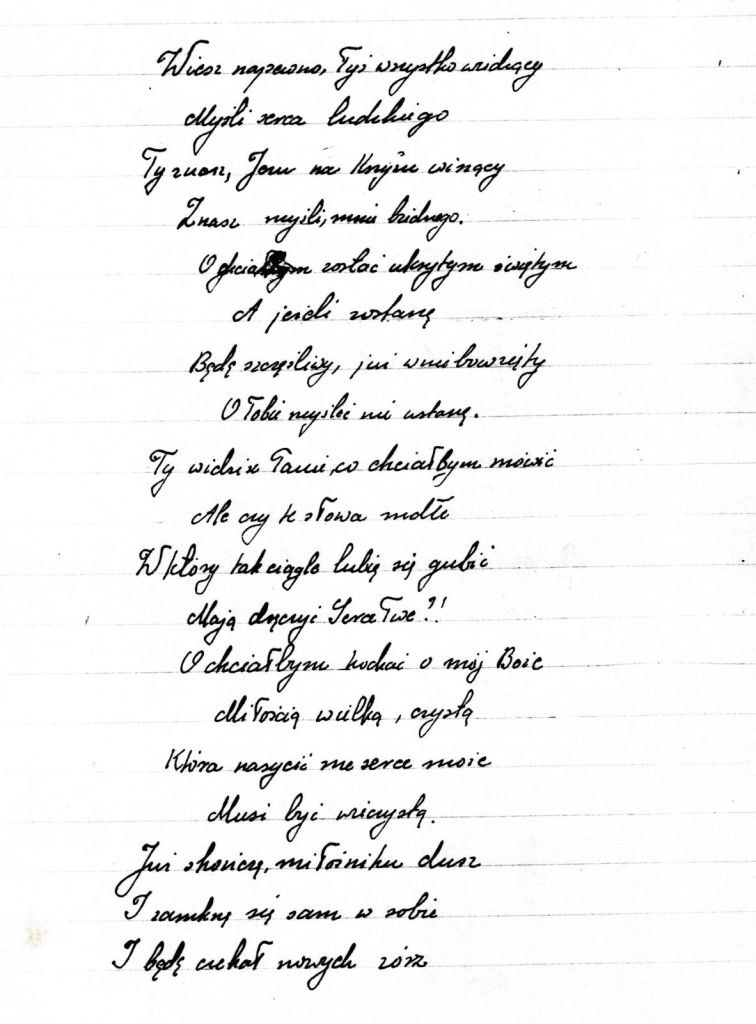 Wiesz napewno, Tyś wszystko widzący
Myśli serca ludzkiego
Ty znasz, Jezu na Krzyżu wiszący
Znasz myśli, mnie biednego.
O chciałbym zostać ukrytym świętym
A jeśli zostanę
Będę szczęśliwy, już w niebowzięty
O Tobie myśleć nie ustanę.
Ty widzisz Panie, co chciałbym mówić
Ale czy te słowa mdłe
W który tak ciągle lubię się gubić
Mają dręczyć Serce Twe?!
O chciałbym kochać o mój Boże
Miłością wielką, czystą
Która nasycić me serce może
Musi być wieczystą.
Już skończę, miłośniku dusz
I zamknę się sam w sobie
I będę czekał nowych zórz